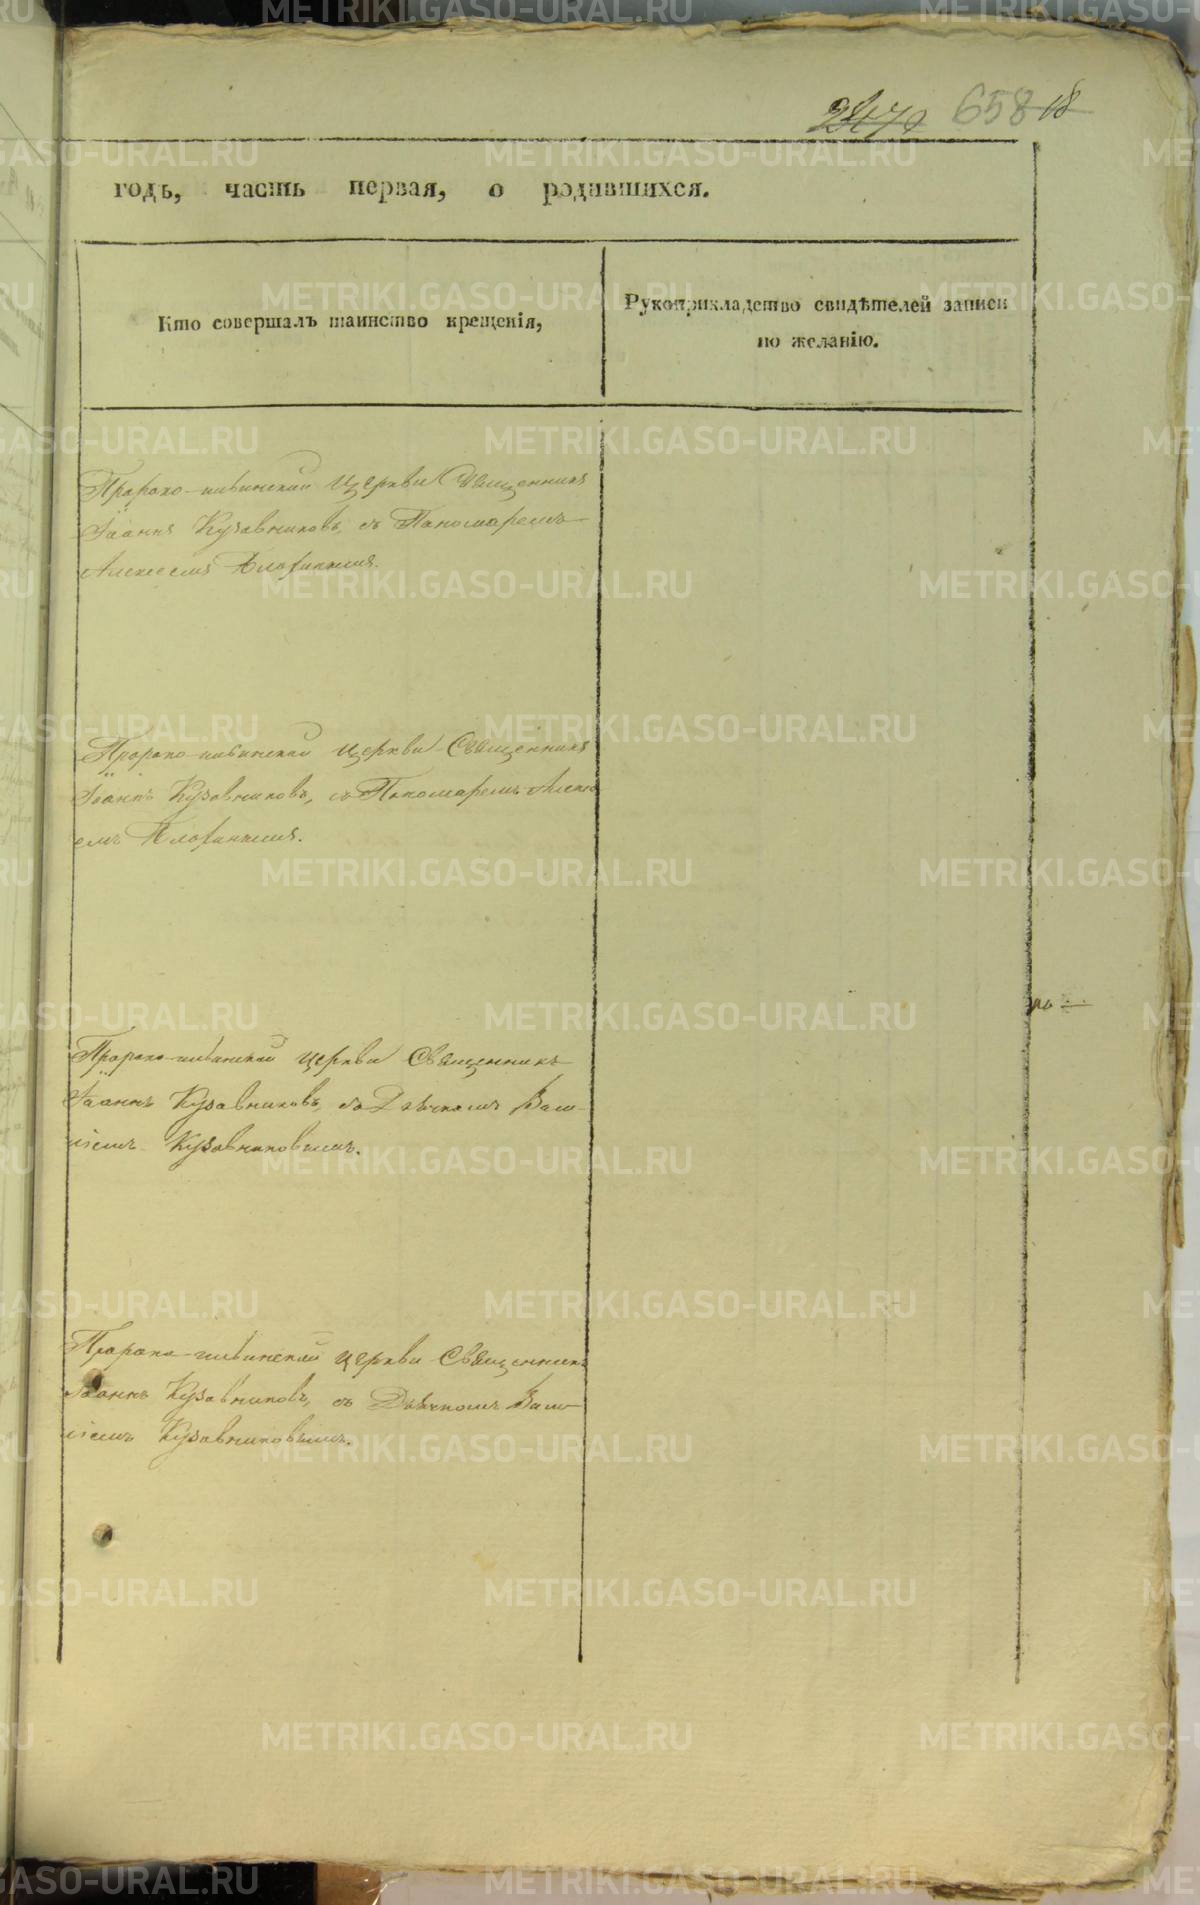 658 18
годъ, часть первая, о родившихся.
Кто совершалъ таинство крещенія,
Рукоприкладство свидѣтелей записи
по желанію.
Пророко-ильинской церкви Священникъ
Іоаннъ Кузовниковъ, съ Пономаремъ
Алексеемъ
Пророко-ильинской церкви Священникъ
Іоаннъ Кузовниковъ, съ Пономаремъ Алексе
емъ
Пророко-ильинской церкви Священникъ
Іоаннъ Кузовниковъ, съ Дьячкомъ Васи-
ліемъ Кузовниковымъ.
Пророко-ильинской церкви Священникъ
Іоаннъ Кузовниковъ, съ Дьячкомъ Васи-
ліемъ Кузовниковымъ.
METRIKI.GASO-URAL.RU